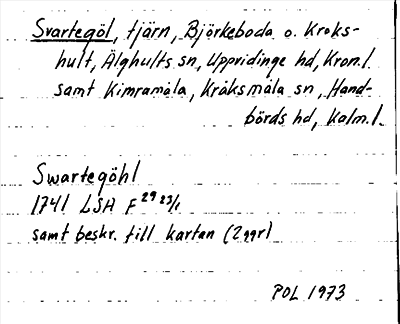 Svartegöl, tjärn, Björkeboda o. Kroks-
hult, Älghults sn, Uppvidinge hd, Kron.l.
samt Kimramåla, Kråksmåla sn, Hand-
börds hd, Kalm.l.
Swartegöhl
1741 LSA F 29 23/1
samt beskr. till kartan (2 ggr)
POL 1973